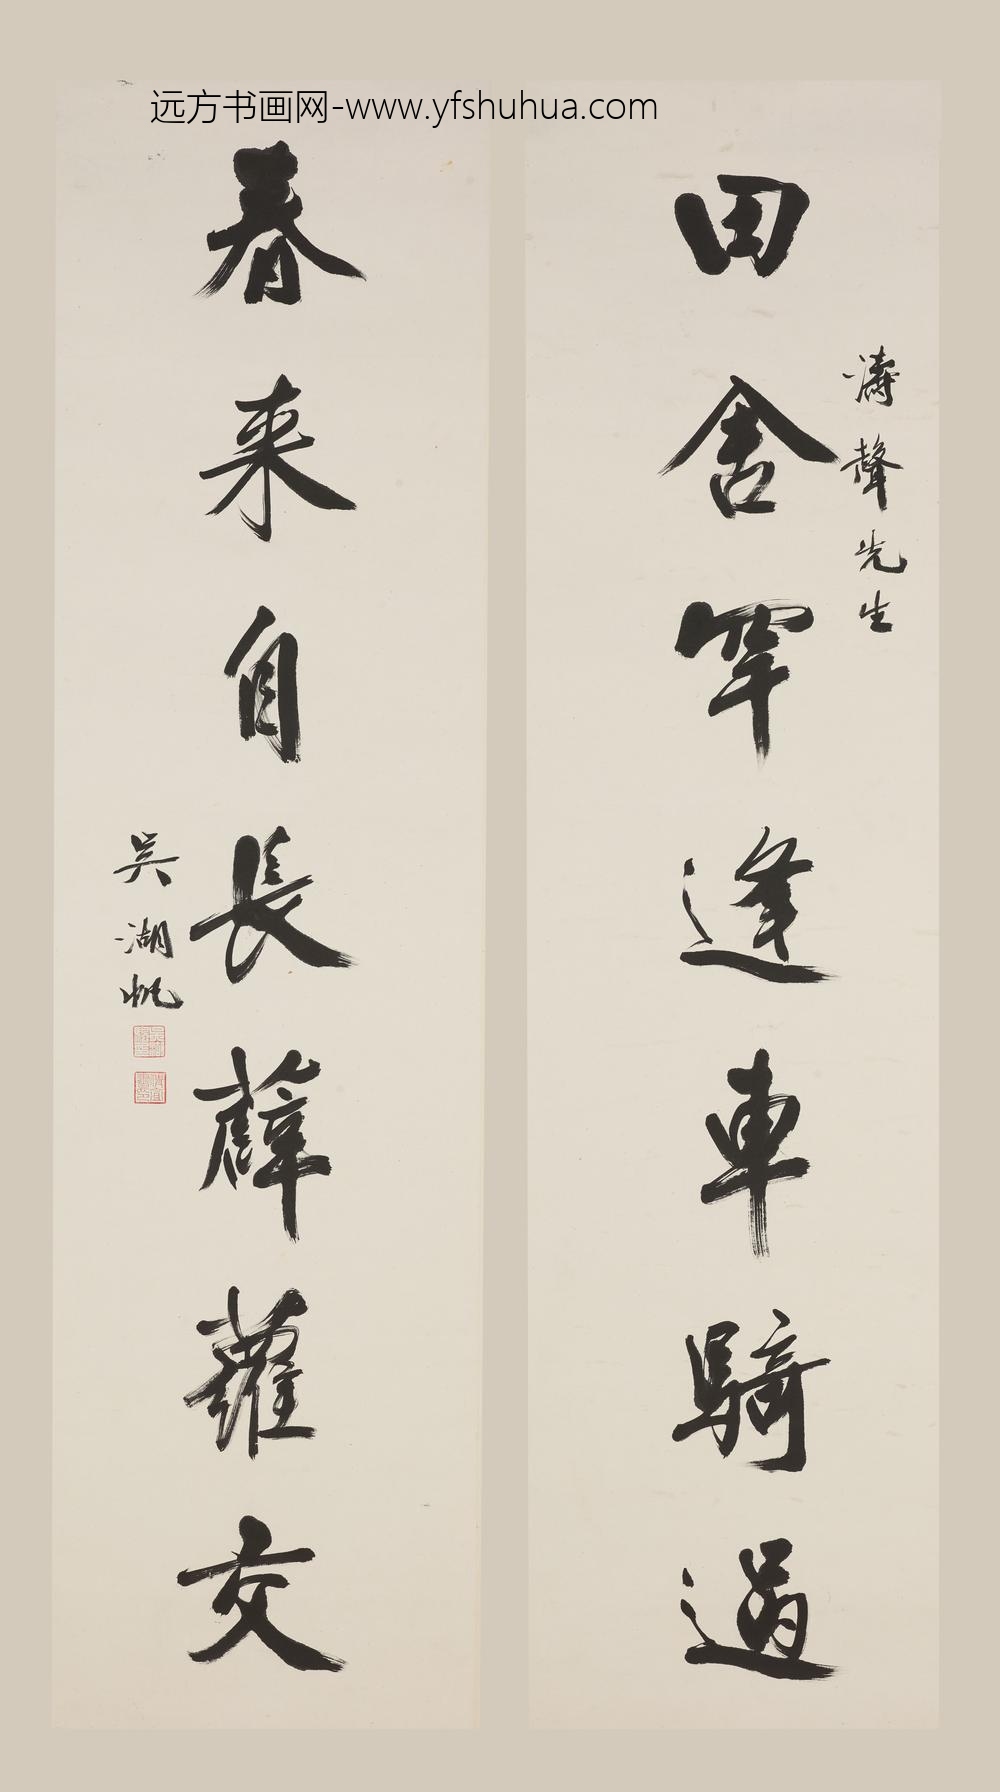 远方书画网-www.yfshuhua.com
田舍罕逢車騎過
濤聲先生
春来自長薜蘿交
吴湖帆